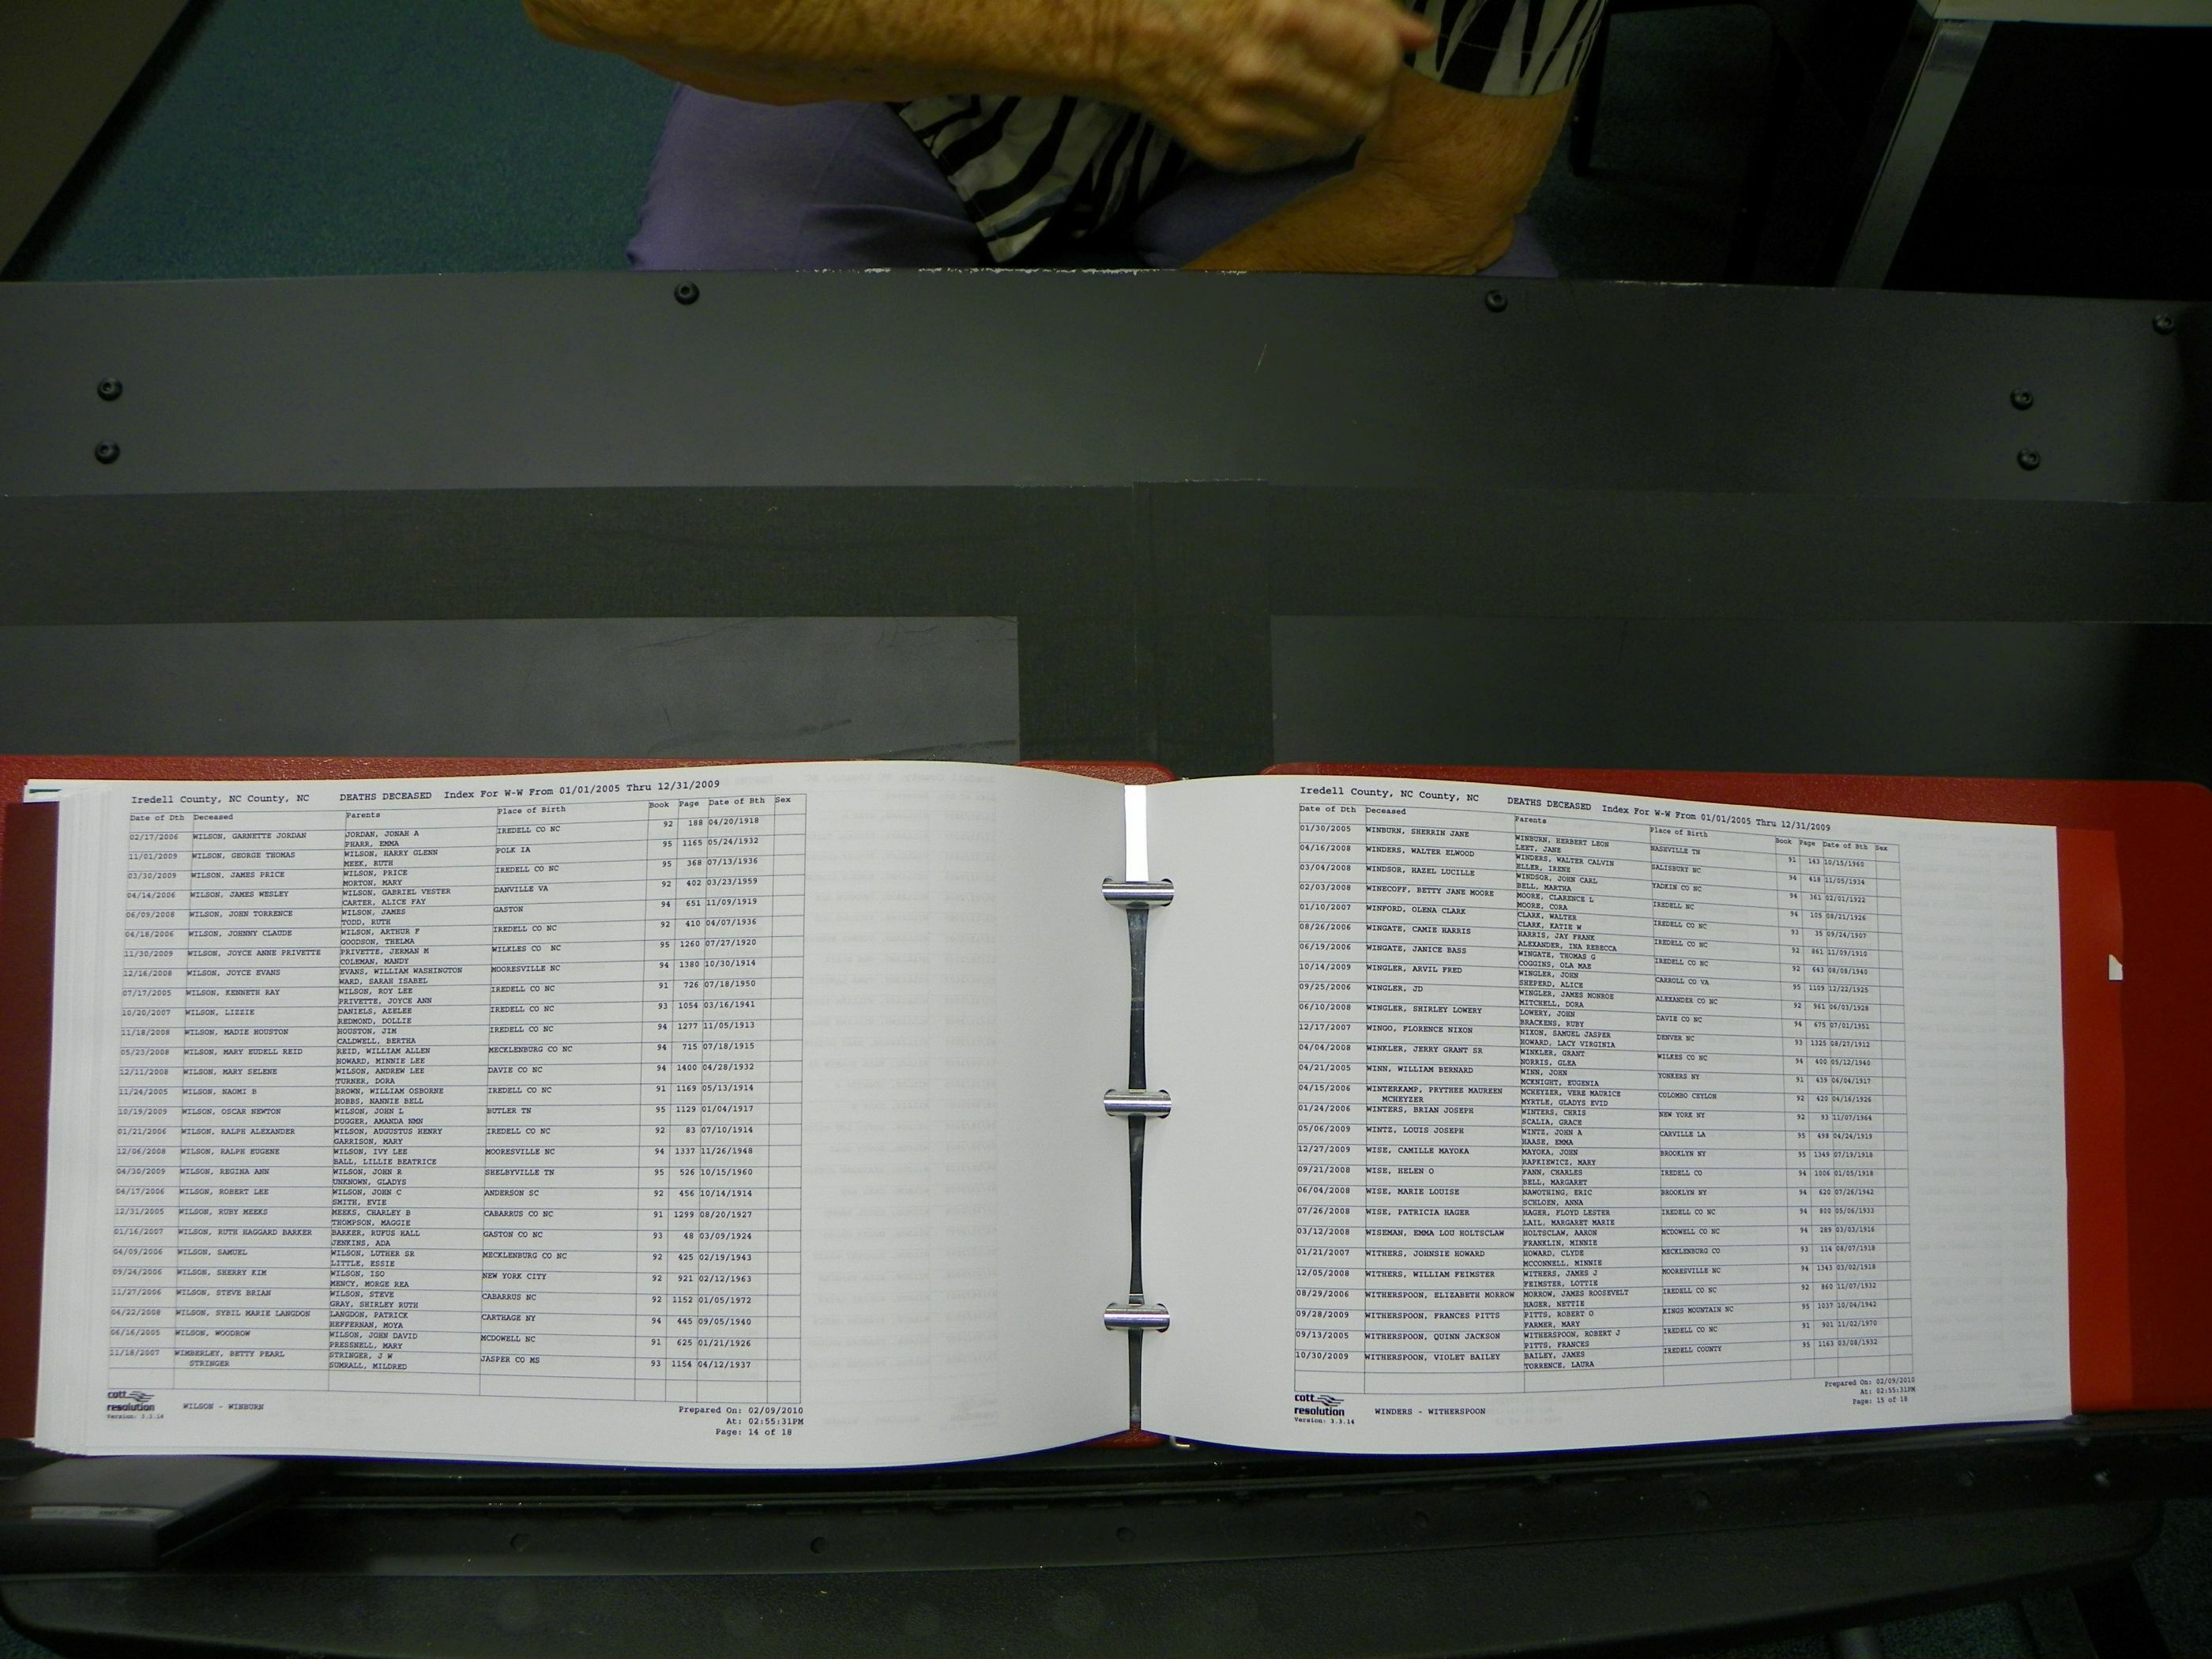 Iredell County, NC County, NC DEATHS DECEASED Index For W-W From 01/01/2005 Thru 12/31/2009
Date of Dth Deceased Parents Place of Birth Book Page Date of Bth Sex
02/17/2006 WILSON, GARNETTE JORDAN JORDAN, JONAH A IREDELL CO NC 92 188 04/20/1918
PHARR, EMMA
11/01/2009 WILSON, GEORGE THOMAS WILSON, HARRY GLENN POLK IA 95 1165 05/24/1932
MEEK, RUTH
03/30/2009 WILSON, JAMES PRICE WILSON, PRICE IREDELL CO NC 95 368 07/13/1936
MORTON, MARY
04/14/2006 WILSON, JAMES WESLEY WILSON, GABRIEL VESTER DANVILLE VA 92 402 03/23/1959
CARTER, ALICE FAY
06/09/2008 WILSON, JOHN TORRENCE WILSON, JAMES GASTON 94 651 11/09/1919
TODD, RUTH
04/18/2006 WILSON, JOHNNY CLAUDE WILSON, ARTHUR F IREDELL CO NC 92 410 04/07/1936
GOODSON, THELMA
11/30/2009 WILSON, JOYCE ANNE PRIVETTE PRIVETTE, JERMAN M WILKLES CO NC 95 1260 07/27/1920
COLEMAN, MANDY
12/16/2008 WILSON, JOYCE EVANS EVANS, WILLIAM WASHINGTON MOORESVILLE NC 94 1380 10/30/1914
WARD, SARAH ISABEL
07/17/2005 WILSON, KENNETH RAY WILSON, ROY LEE IREDELL CO NC 91 726 07/18/1950
PRIVETTE, JOYCE ANN
10/20/2007 WILSON, LIZZIE DANIELS, AZELEE IREDELL CO NC 93 1054 03/16/1941
REDMOND, DOLLIE
11/18/2008 WILSON, MADIE HOUSTON HOUSTON, JIM IREDELL CO NC 94 1277 11/05/1913
CALDWELL, BERTHA
05/23/2008 WILSON, MARY EUDELL REID REID, WILLIAM ALLEN MECKLENBURG CO NC 94 715 07/18/1915
HOWARD, MINNIE LEE
12/11/2008 WILSON, MARY SELENE WILSON, ANDREW LEE DAVIE CO NC 94 1400 04/28/1932
TURNER, DORA
11/24/2005 WILSON, NAOMI B BROWN, WILLIAM OSBORNE IREDELL CO NC 91 1169 05/13/1914
HOBBS, NANNIE BELL
10/19/2009 WILSON, OSCAR NEWTON WILSON, JOHN L BUTLER TN 95 1129 01/04/1917
DUGGER, AMANDA NMN
01/21/2006 WILSON, RALPH ALEXANDER WILSON, AUGUSTUS HENRY IREDELL CO NC 92 83 07/10/1914
GARRISON, MARY
12/06/2008 WILSON, RALPH EUGENE WILSON, IVY LEE MOORESVILLE NC 94 1337 11/26/1948
BALL, LILLIE BEATRICE
04/30/2009 WILSON, REGINA ANN WILSON, JOHN R SHELBYVILLE TN 95 526 10/15/1960
UNKNOWN, GLADYS
04/17/2006 WILSON, ROBERT LEE WILSON, JOHN C ANDERSON SC 92 456 10/14/1914
SMITH, EVIE
12/31/2005 WILSON, RUBY MEEKS MEEKS, CHARLEY B CABARRUS CO NC 91 1299 08/20/1927
THOMPSON, MAGGIE
01/16/2007 WILSON, RUTH HAGGARD BARKER BARKER, RUFUS HALL GASTON CO NC 93 48 03/09/1924
JENKINS, ADA
04/09/2006 WILSON, SAMUEL WILSON, LUTHER SR MECKLENBURG CO NC 92 425 02/19/1943
LITTLE, ESSIE
09/24/2006 WILSON, SHERRY KIM WILSON, ISO NEW YORK CITY 92 921 02/12/1963
MENCY, MORGE REA
11/27/2006 WILSON, STEVE BRIAN WILSON, STEVE CABARRUS NC 92 1152 01/05/1972
GRAY, SHIRLEY RUTH
04/22/2008 WILSON, SYBIL MARIE LANGDON LANGDON, PATRICK CARTHAGE NY 94 445 09/05/1940
HEFFERNAN, MOYA
06/16/2005 WILSON, WOODROW WILSON, JOHN DAVID MCDOWELL NC 91 625 01/21/1926
PRESSNELL, MARY
11/18/2007 WIMBERLEY, BETTY PEARL STRINGER, J W JASPER CO MS 93 1154 04/12/1937
STRINGER SUMRALL, MILDRED
cott
resolution
Version: 3.3.14
WILSON - WINBURN
Prepared On: 02/09/2010
At: 02:55:31PM
Page: 14 of 18
Iredell County, NC County, NC DEATHS DECEASED Index For W-W From 01/01/2005 Thru 12/31/2009
Date of Dth Deceased Parents Place of Birth Book Page Date of Bth Sex
01/30/2005 WINBURN, SHERRIN JANE WINBURN, HERBERT LEON NASHVILLE TN 91 143 10/15/1960
LEET, JANE
04/16/2008 WINDERS, WALTER ELWOOD WINDERS, WALTER CALVIN SALISBURY NC 94 418 11/05/1934
ELLER, IRENE
03/04/2008 WINDSOR, HAZEL LUCILLE WINDSOR, JOHN CARL YADKIN CO NC 94 361 02/01/1922
BELL, MARTHA
02/03/2008 WINECOFF, BETTY JANE MOORE MOORE, CLARENCE L IREDELL NC 94 105 08/21/1926
MOORE, CORA
01/10/2007 WINFORD, OLENA CLARK CLARK, WALTER IREDELL CO NC 93 35 09/24/1907
CLARK, KATIE W
08/26/2006 WINGATE, CAMIE HARRIS HARRIS, JAY FRANK IREDELL CO NC 92 861 11/09/1910
ALEXANDER, INA REBECCA
06/19/2006 WINGATE, JANICE BASS WINGATE, THOMAS G IREDELL CO NC 92 643 08/08/1940
COGGINS, OLA MAE
10/14/2009 WINGLER, ARVIL FRED WINGLER, JOHN CARROLL CO VA 95 1109 12/22/1925
SHEPERD, ALICE
09/25/2006 WINGLER, JD WINGLER, JAMES MONROE ALEXANDER CO NC 92 961 06/03/1928
MITCHELL, DORA
06/10/2008 WINGLER, SHIRLEY LOWERY LOWERY, JOHN DAVIE CO NC 94 675 07/01/1951
BRACKENS, RUBY
12/17/2007 WINGO, FLORENCE NIXON NIXON, SAMUEL JASPER DENVER NC 93 1325 08/27/1912
HOWARD, LACY VIRGINIA
04/04/2008 WINKLER, JERRY GRANT SR WINKLER, GRANT WILKES CO NC 94 400 05/12/1940
NORRIS, GLEA
04/21/2005 WINN, WILLIAM BERNARD WINN, JOHN YONKERS NY 91 439 06/04/1917
MCKNIGHT, EUGENIA
04/15/2006 WINTERKAMP, PRYTHEE MAUREEN MCHEYZER, VERE MAURICE COLOMBO CEYLON 92 420 04/16/1926
MCHEYZER MYRTLE, GLADYS EVID
01/24/2006 WINTERS, BRIAN JOSEPH WINTERS, CHRIS NEW YORK NY 92 93 11/07/1964
SCALIA, GRACE
05/06/2009 WINTZ, LOUIS JOSEPH WINTZ, JOHN A CARVILLE LA 95 498 04/24/1919
HAASE, EMMA
12/27/2009 WISE, CAMILLE MAYOKA MAYOKA, JOHN BROOKLYN NY 95 1349 07/19/1918
RAPKIEWICZ, MARY
09/21/2008 WISE, HELEN O FANN, CHARLES IREDELL CO 94 1006 01/05/1918
BELL, MARGARET
06/04/2008 WISE, MARIE LOUISE NAWOTHING, ERIC BROOKLYN NY 94 620 07/26/1942
SCHLOEN, ANNA
07/26/2008 WISE, PATRICIA HAGER HAGER, FLOYD LESTER IREDELL CO NC 94 802 05/06/1933
LAIL, MARGARET MARIE
03/12/2008 WISEMAN, EMMA LOU HOLTSCLAW HOLTSCLAW, AARON MCDOWELL CO NC 94 289 03/03/1916
FRANKLIN, MINNIE
01/21/2007 WITHERS, JOHNSIE HOWARD HOWARD, CLYDE MECKLENBURG CO 93 114 08/07/1918
MCCONNELL, MINNIE
12/05/2008 WITHERS, WILLIAM FEIMSTER WITHERS, JAMES J MOORESVILLE NC 94 1343 03/02/1918
FEIMSTER, LOTTIE
08/29/2006 WITHERSPOON, ELIZABETH MORROW MORROW, JAMES ROOSEVELT IREDELL CO NC 92 860 11/07/1932
HAGER, NETTIE
09/28/2009 WITHERSPOON, FRANCES PITTS PITTS, ROBERT O KINGS MOUNTAIN NC 95 1037 10/04/1942
FARMER, MARY
09/13/2005 WITHERSPOON, QUINN JACKSON WITHERSPOON, ROBERT J IREDELL CO NC 91 901 11/02/1970
PITTS, FRANCES
10/30/2009 WITHERSPOON, VIOLET BAILEY BAILEY, JAMES IREDELL COUNTY 95 1163 03/08/1932
TORRENCE, LAURA
cott
resolution
Version: 3.3.14
WINDERS - WITHERSPOON
Prepared On: 02/09/2010
At: 02:55:31PM
Page: 15 of 18